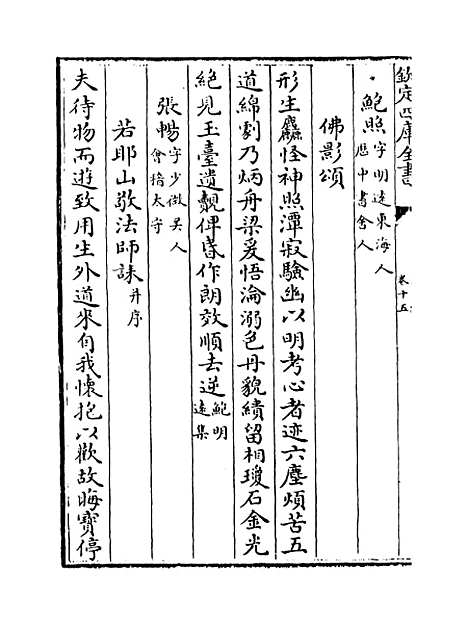 欽定四庫全書
卷十五
鮑照字明逺東海人歴中書舍人
佛影頌
形生麤怪神照潭寂驗幽以明考心者迹六塵煩苦五
道綿劇乃炳舟梁爰悟淪溺色丹貌績留相瓊石金光
絶見玉臺遺覿俾昏作朗效順去逆鮑明逺集
張暢字少微吴人會稽太守
若耶山敬法師誄并序
夫待物而遊致用生外道來自我懐抱以歡故晦寶停